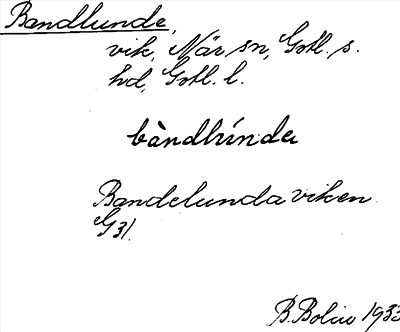 Bandlunde,
vik, När sn, Gotl. s.
hd, Gotl. l.
bàndlúnda
Bandelunda viken
G31.
B. Bolin 1933